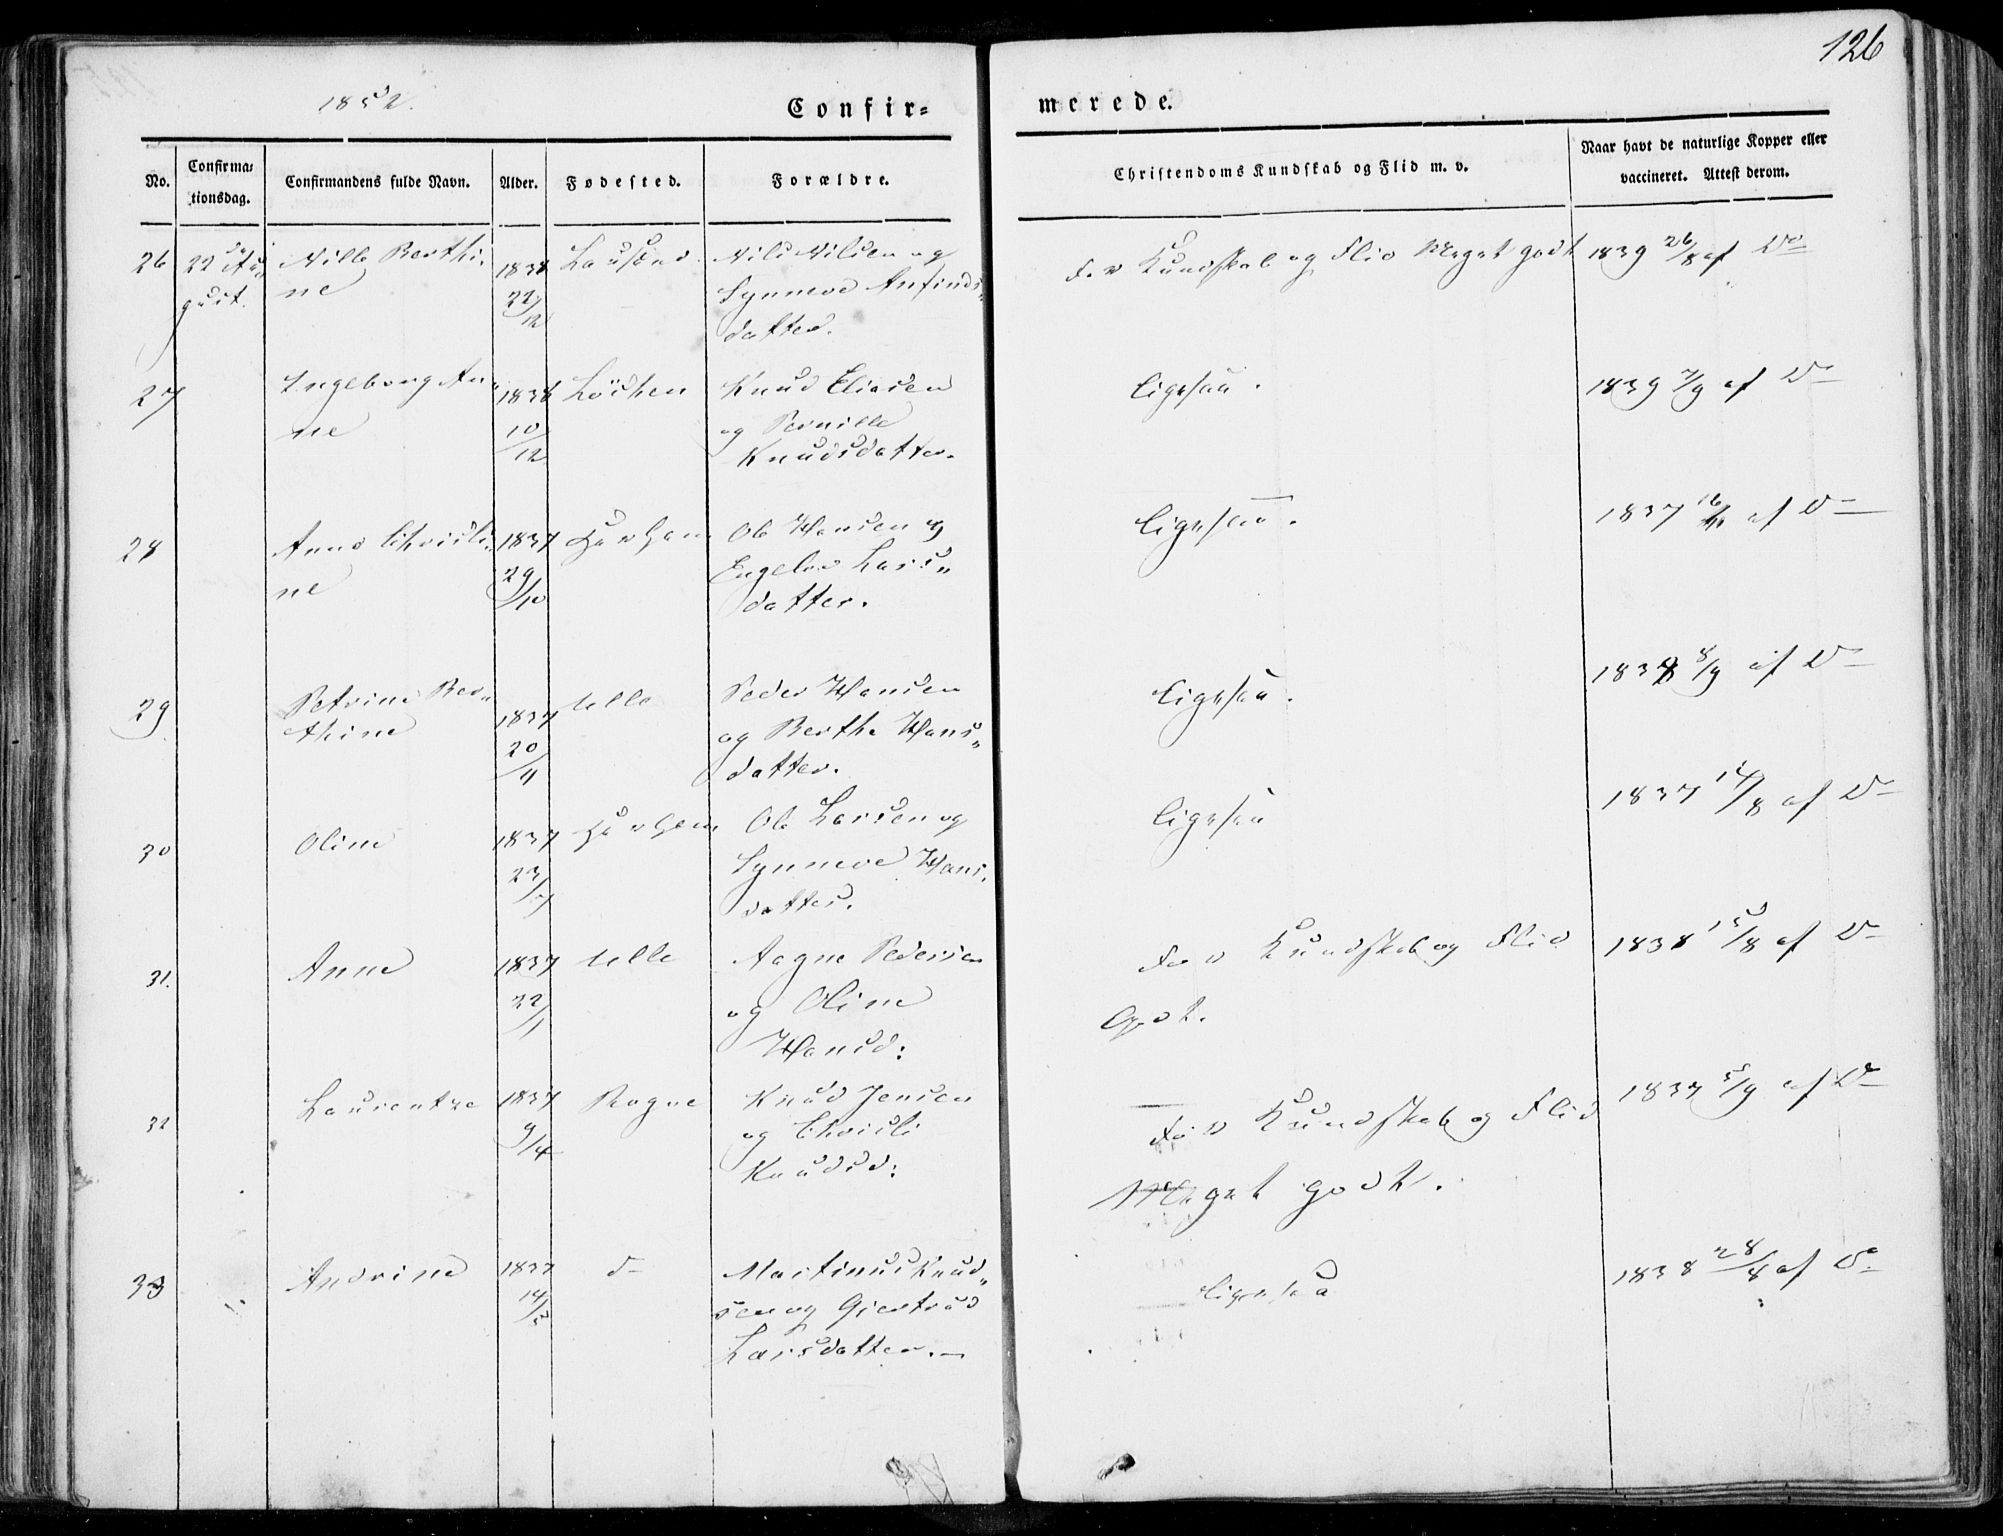 126
1852.
Confir= merede.
No.
Confirma=
tionsdag.
Confirmandens fulde Navn.
Alder.
Fødested.
Forældre.
Christendoms Kundskab og Flid m. v.
Naar havt de naturlige Kopper eller
vaccineret. Attest derom.
26 22 Au- Nille Berthi- 1838 Nils Nilsen og For Kundskab og Flid Meget godt 1839 26/8 af Do
gust. ne 22/12 Synneve Anfinds-
datter.
27 Ingeborg An- 1838 Knud Eliasen Ligesaa. 1839 7/9 af Do
ne 10/12 og Pernille
Knudsdatter.
28 Anne Christi- 1837 Ole Hansen og Ligesaa. 1837 af Do
ne 29/10 Lars-
datter.
29 Petrine Ber- 1837 Ulle Peder Hansen Ligesaa. 8/9 af Do
thine 20/11 og Berthe Hans-
datter.
30 Oline 1837 Ole Larsen og Ligesaa 1837 14/8 af Do
23/7 Synneve Hans-
datter.
31. Anne 1837 Ulle Aagne Pedersen For Kundskab og Flid 1838 15/8 af Do
22/1 og Oline Godt.
Hansd:
32 Laurentze 1837 Rogne Knud Jensen For Kundskab og Flid 1837 5/9 af Do
9/4 og Christi Meget godt.
Knudsd:
33 Andrine 1837 d- Martinus Knud- Ligesaa 1838 28/4 af Do
sen og Gjertrud
Larsdatter.-